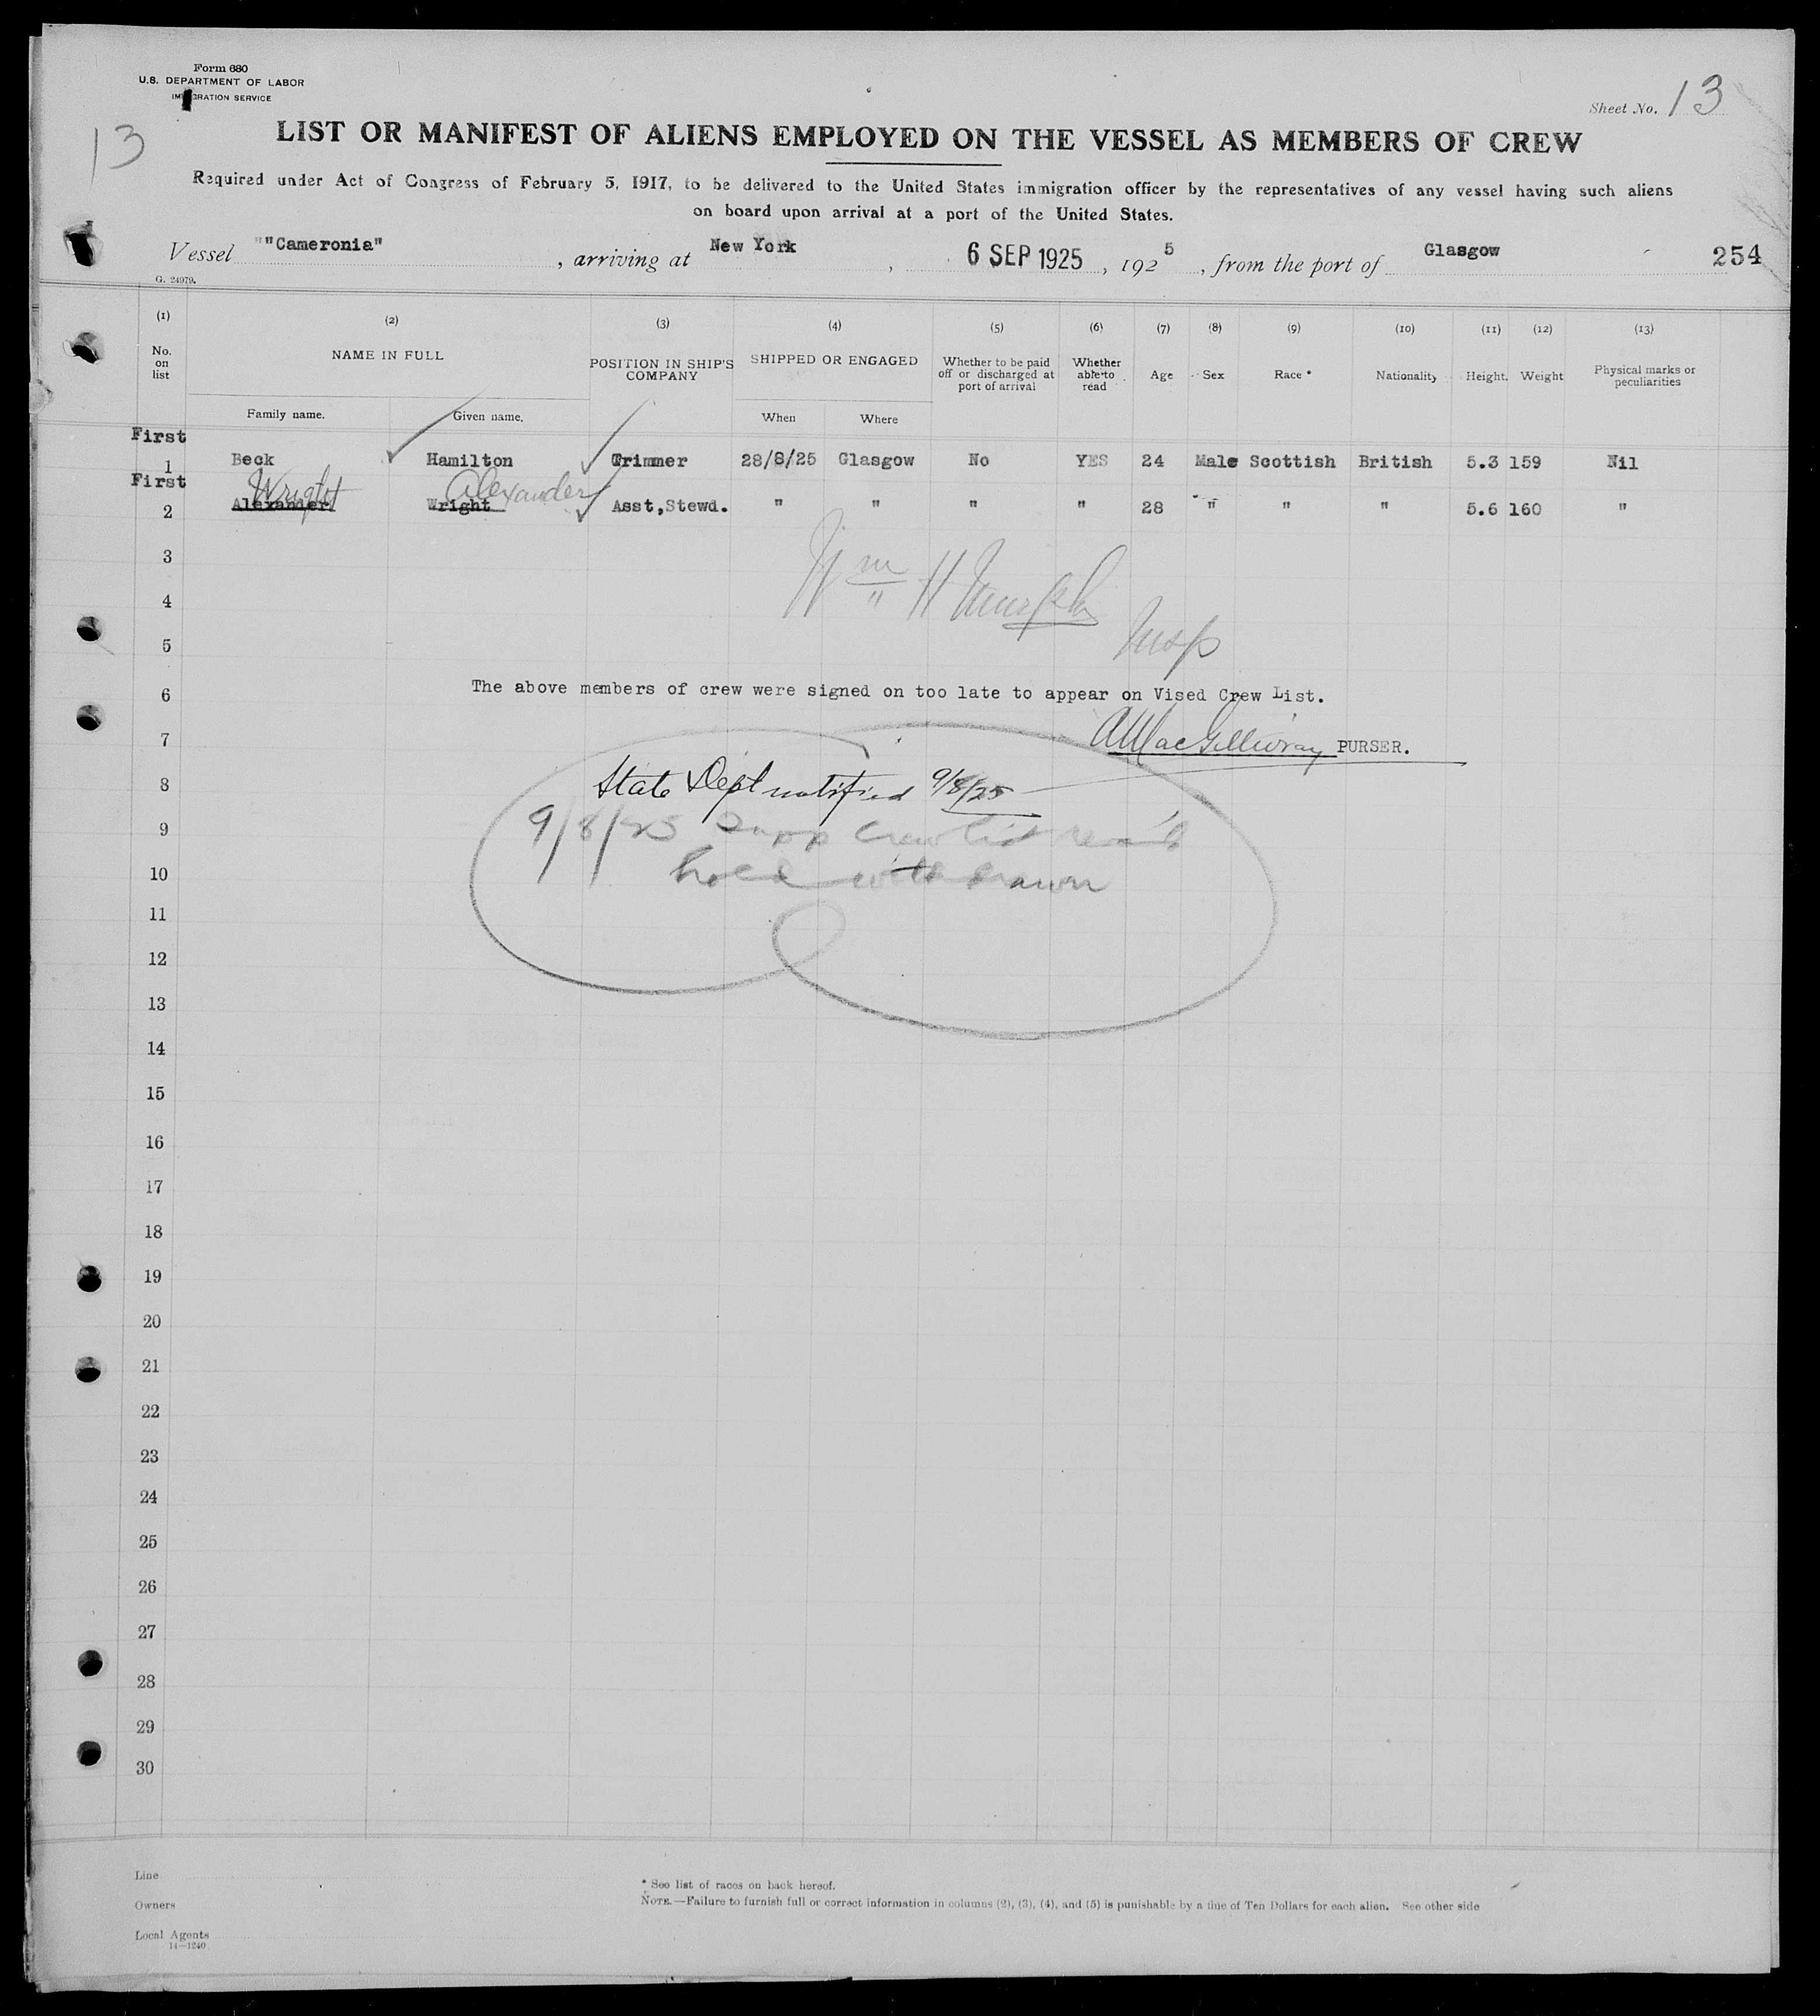 Form 680
U.S. DEPARTMENT OF LABOR
IMMIGRATION SERVICE
13
Sheet No. 13
LIST OR MANIFEST OF ALIENS EMPLOYED ON THE VESSEL AS MEMBERS OF CREW
Required under Act of Congress of February 5, 1917, to be delivered to the United States immigration officer by the representatives of any vessel having such aliens
on board upon arrival at a port of the United States.
Vessel ""Cameronia" , arriving at New York , 6 SEP 1925 , 192 5 , from the port of Glasgow 254
G. 24979.
(1) (2) (3) (4) (5) (6) (7) (8) (9) (10) (11) (12) (13)
No. on list NAME IN FULL POSITION IN SHIP'S COMPANY SHIPPED OR ENGAGED Whether to be paid off or discharged at port of arrival Whether able to read Age Sex Race * Nationality Height. Weight Physical marks or peculiarities
Family name. Given name. When Where
First
1 Beck Hamilton Trimmer 28/8/25 Glasgow No YES 24 Male Scottish British 5.3 159 Nil
First
Wright Alexander
2 Alexander Wright Asst,Stewd. " " " " 28 " " " 5.6 160 "
3
Wm H Murphy
4
Insp
5
6 The above members of crew were signed on too late to appear on Vised Crew List.
7 A MacGillivray PURSER.
8 State Dept notified 9/8/25
9 9/8/25 Supp Crew list rec'd
10 hold withdrawn
11
12
13
14
15
16
17
18
19
20
21
22
23
24
25
26
27
28
29
30
Line
* See list of races on back hereof.
Owners NOTE.—Failure to furnish full or correct information in columns (2), (3), (4), and (5) is punishable by a fine of Ten Dollars for each alien. See other side
Local Agents
14—1240